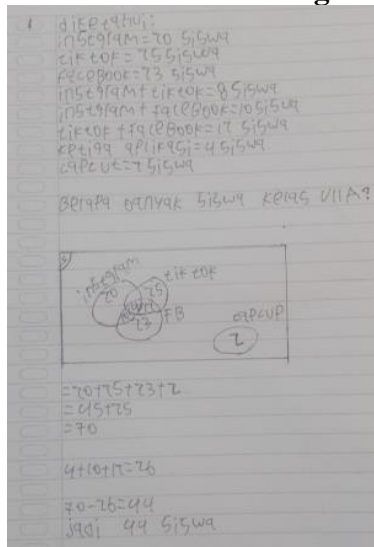 1 diketahui:
instagram=20 siswa
tiktok=25 siswa
faceBook=23 siswa
instagram+tiktok=8 siswa
instagram+faceBook=10 siswa
tiktok+faceBook=12 siswa
ketiga aplikasi=4 siswa
capcut=2 siswa
Berapa banyak siswa kelas VIIA?
S
instagram
tiktok
20
25
FB
23
capcup
2
=20+25+23+2
=45+25
=70
4+10+12=26
70-26=44
jadi 44 siswa